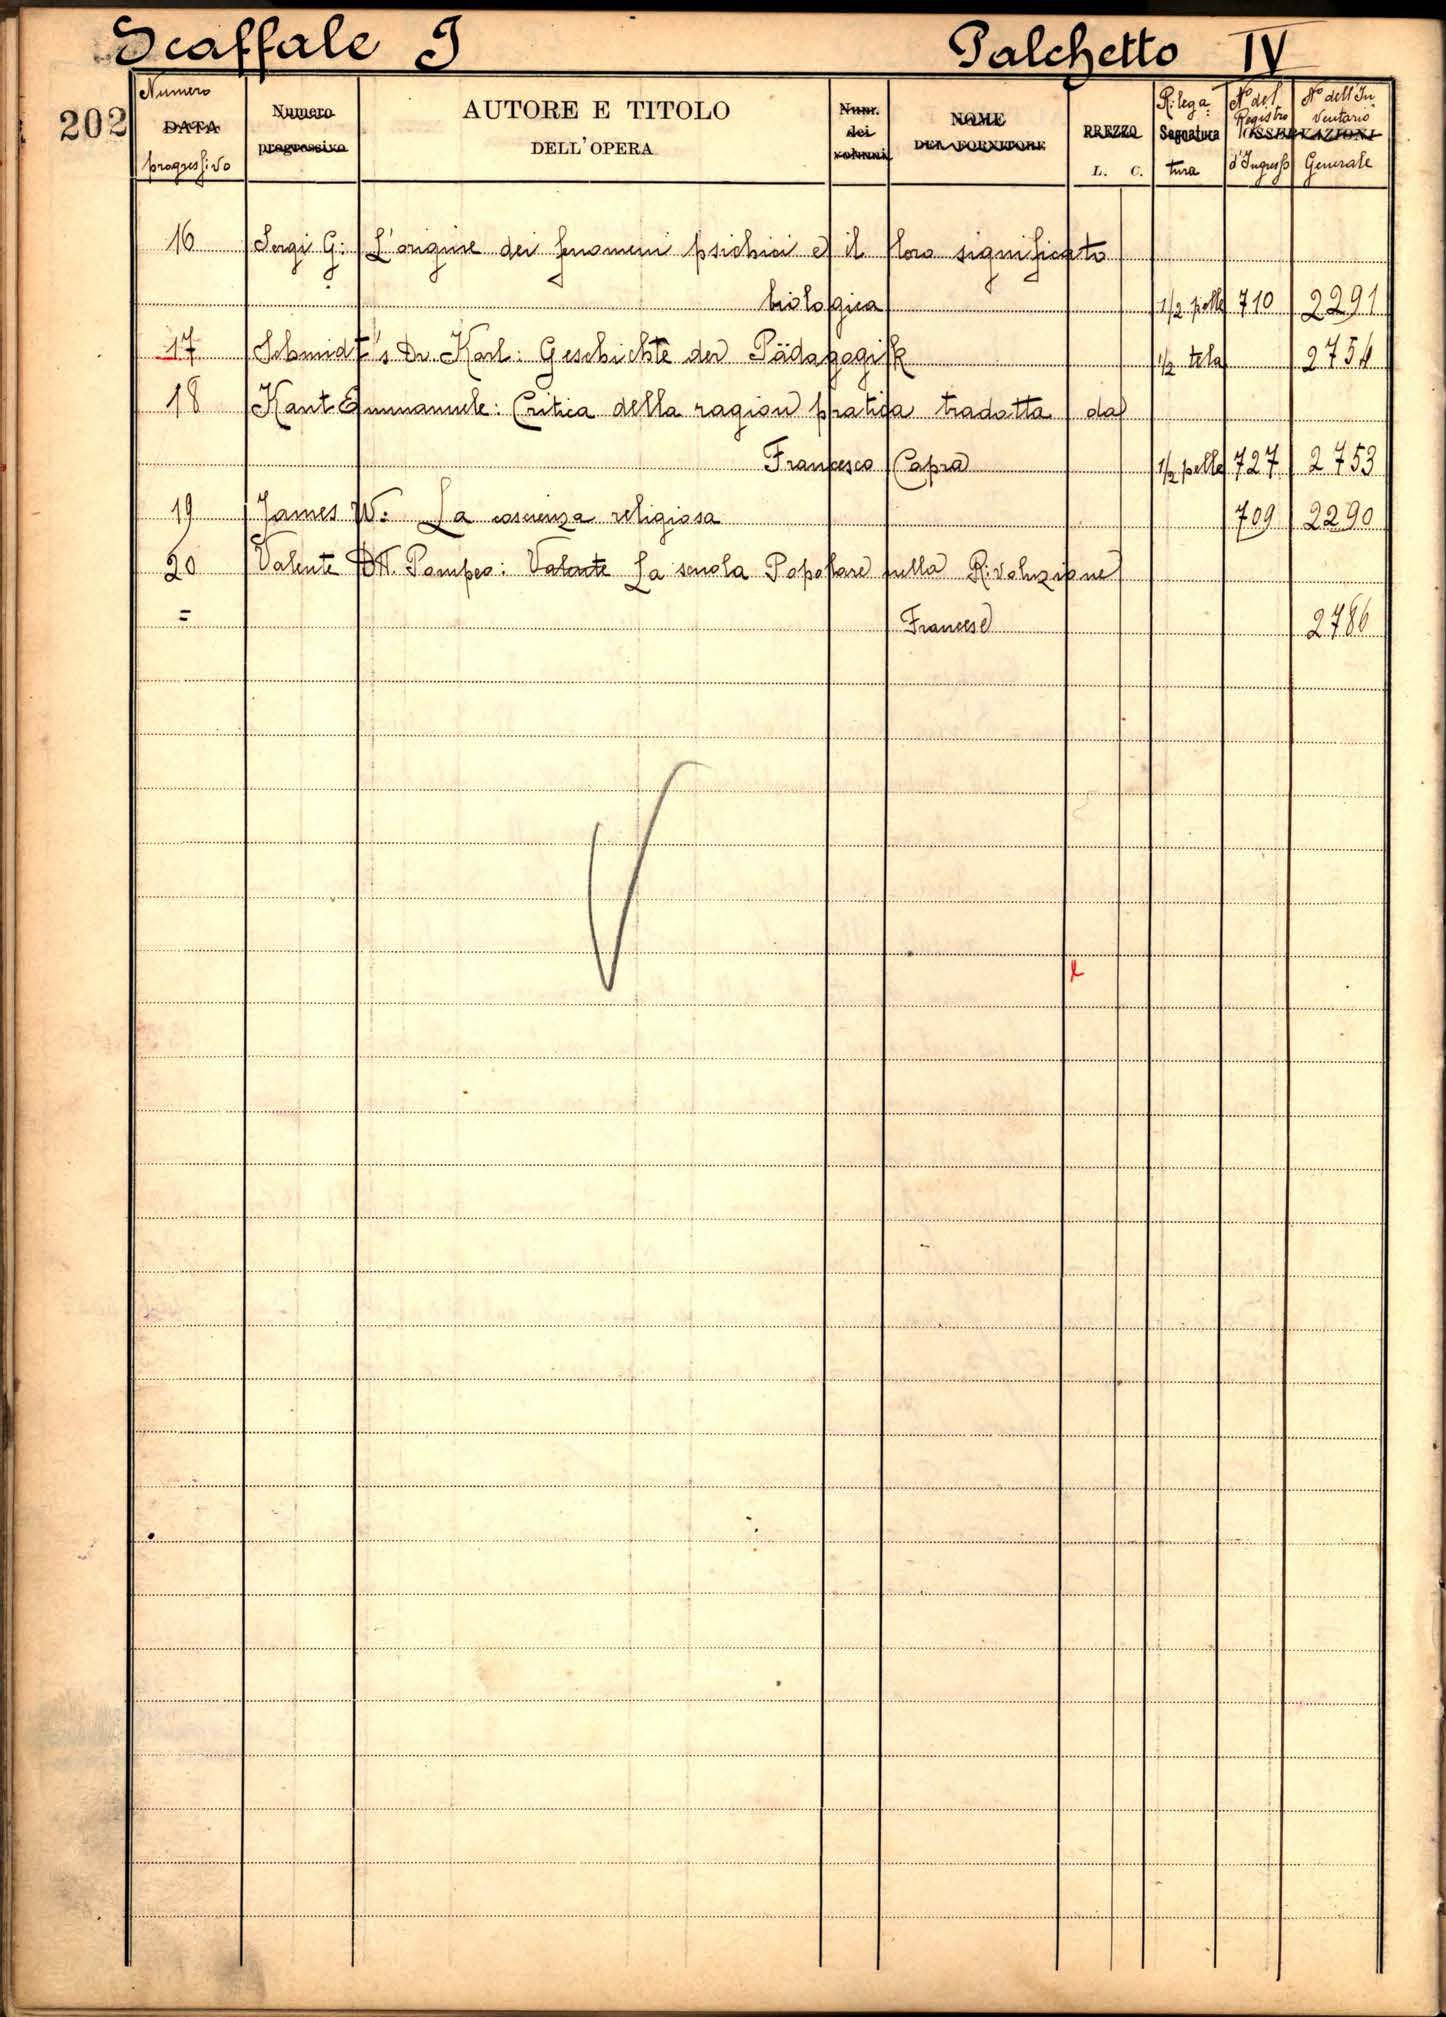 Scaffale I Palchetto IV
202
Numero DATA progressivo
Numero progressivo
AUTORE E TITOLO
DELL'OPERA
Num. dei volumi
NOME
DEL FORNITORE
PREZZO
L. C.
Rilega- Segnatura tura
N° del Registro d'Ingresso
N° dell'In- ventario Generale
OSSERVAZIONI
16 Sergi G: L'origine dei fenomeni psichici e il loro significato
biologica 1/2 pelle 710 2291
17 Schmidt's Dr. Karl: Geschichte der Pädagogik 1/2 tela 2754
18 Kant Emmanuele: Critica della ragion pratica tradotta da
Francesco Capra 1/2 pelle 727 2753
19 James W: La coscienza religiosa 709 2290
20 Valente Dtt. Pompeo: Valante La scuola Popolare nella Rivoluzione
= Francese 2786